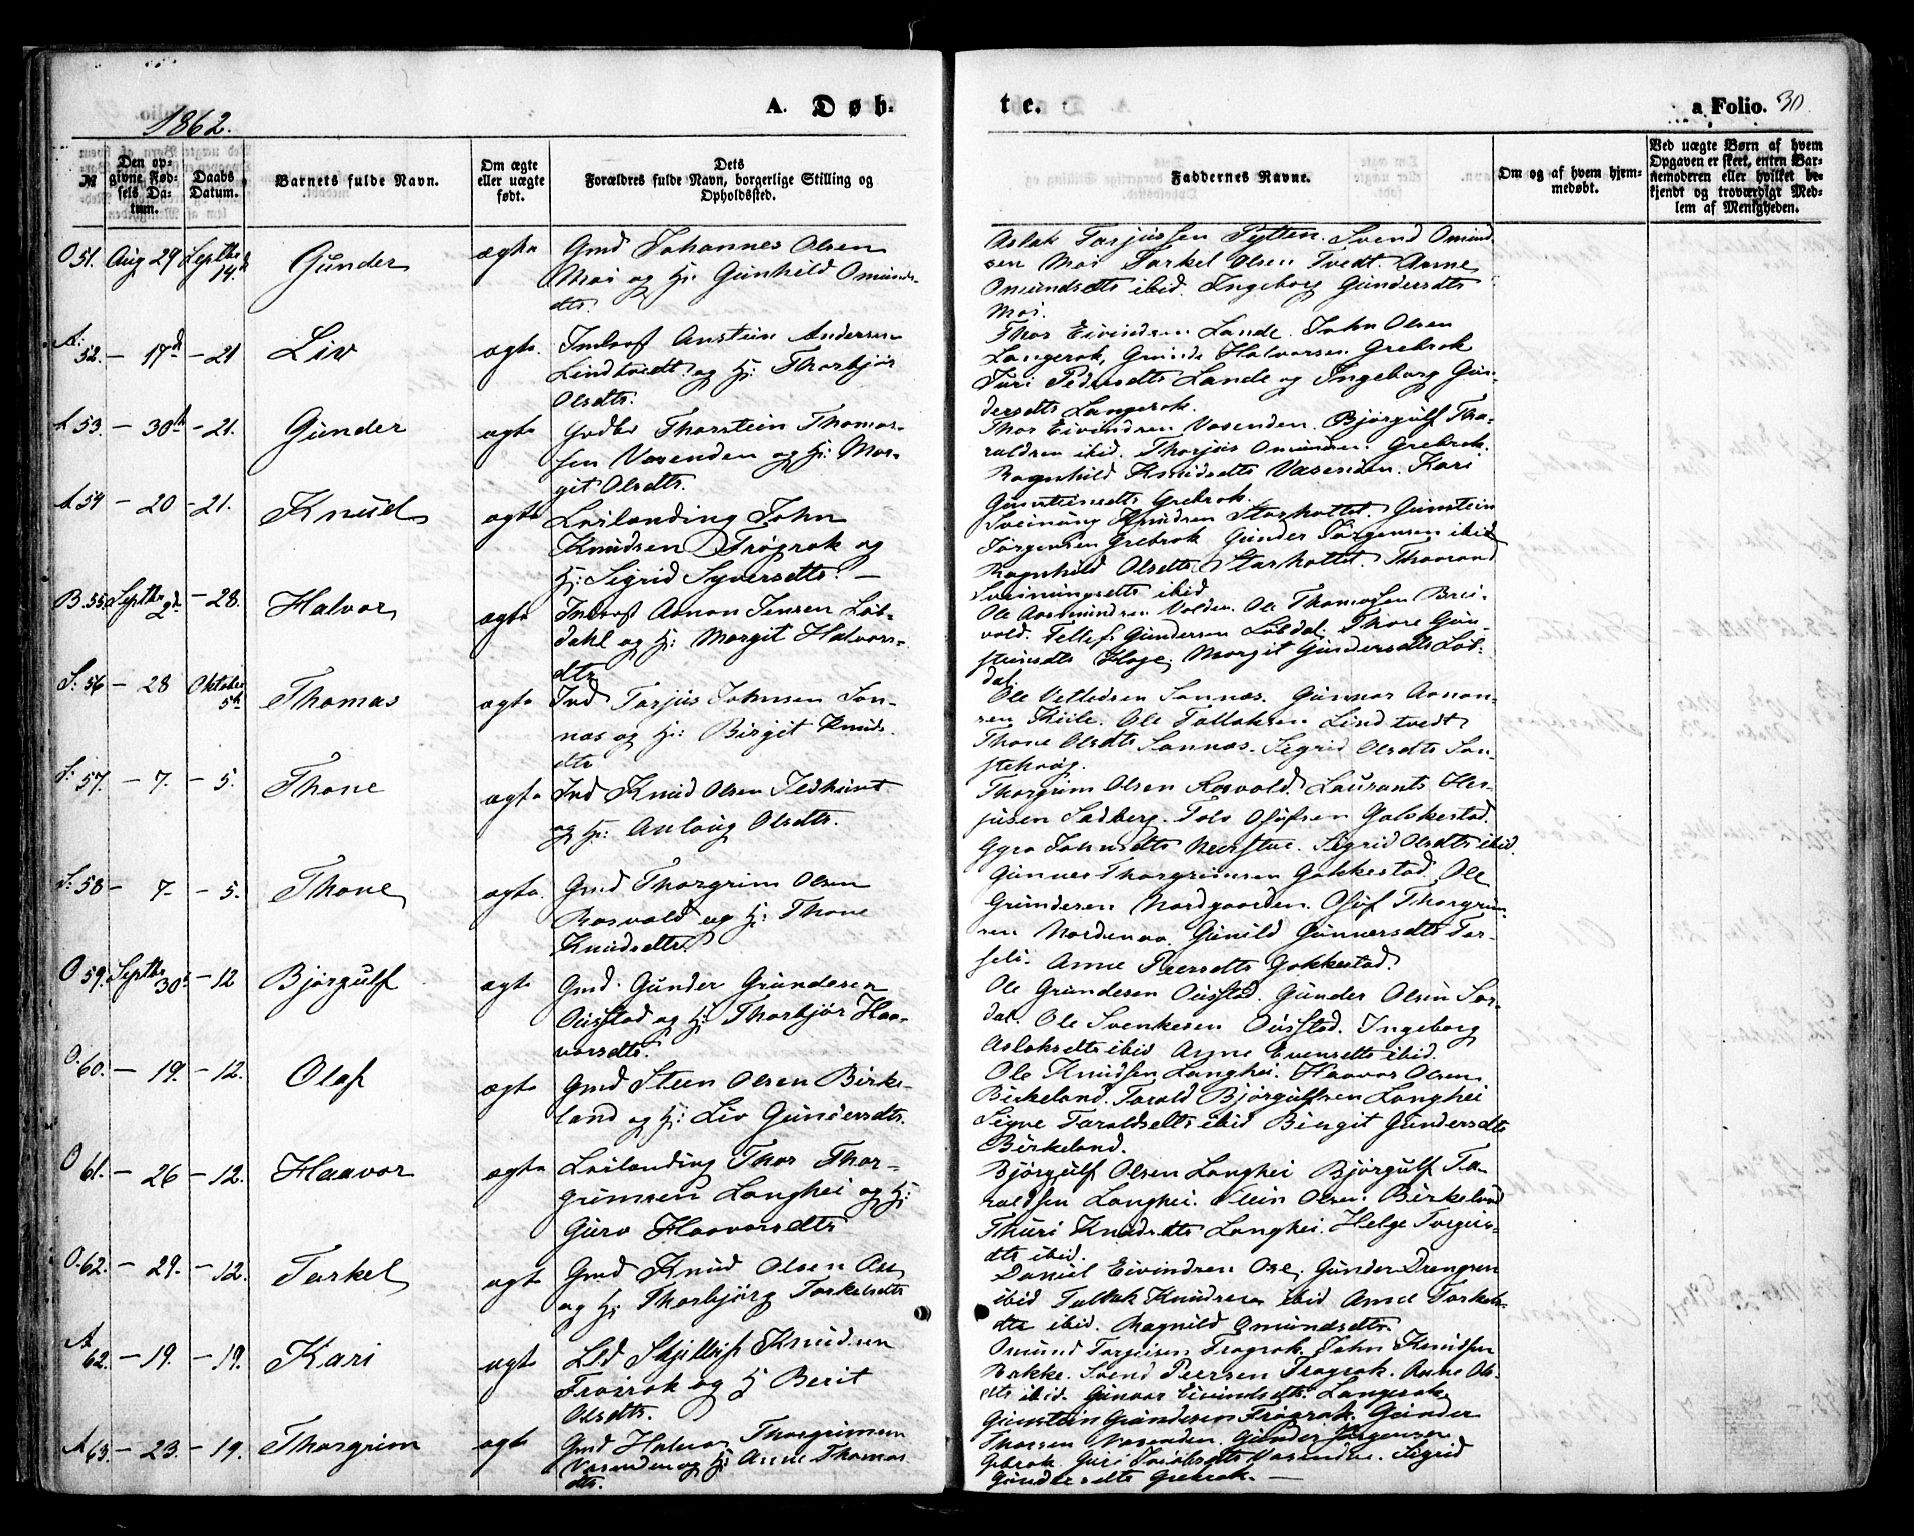 1862.
A. Døb-
te.
a Folio. 30.
№
Den op-
givne Fød-
sels Da-
tum.
Daabs
Datum.
Barnets fulde Navn.
Om ægte
eller uægte
født.
Dets
Forældres fulde Navn, borgerlige Stilling og
Opholdssted.
Faddernes Navne.
Om og af hvem hjem-
medøbt.
Ved uægte Børn af hvem
Opgaven er skeet, enten Bar-
nemoderen eller hvilket be-
kjendt og troværdigt Med-
lem af Menigheden.
O 51. Aug 29 Septbr 14. Gunder ægte
Gmd Johannes Olsen
Moi og H: Gunhild Omunds-
dtr.
Aslak Tarjussen Tytten. Svend Omund
sen Moi Tarkel Olsen Tvedt. Aasne
Omundsdtr ibid. Ingeborg Gundersdtr
Moi.
A: 52. – 17d – 21 Liv ægte.
Indvaaf Austein Andersen
Lindtvedt og H: Thorbjør
Olsdtr.
Thor Eivindsen Lande. John Olsen
Langerak, Gunde Halvorsen Grebrok
Turi Pedersdtr Lande og Ingeborg Gun-
dersdtr Langerak.
A 53. – 30te – 21. Gunder ægte
Thorstein Thomas-
sen Vasenden og H: Mar-
git Olsdtr.
Thor Eivindsen Vasenden. Bjørgulf Tha-
raldsen ibid. Thorjus Omundsen Grebrok.
Ragnhild Knudsdtr Vasenden. Kari
Gunsteinsdtr Grebrok.
A 54 – 20 – 21. Knud ægte
Leilænding John
Knudsen Frøyrok og
H: Sigrid Syversdtr. –
Sveinung Knudsen Storhottet. Gunstein
Jørgensen Grebrok Gunder Jørgensen ibid
Ragnhild Olsdtr Storhottet. Thoorand
Sveinungsdtr ibid.
B. 55 Septbr 2d – 28. Halvor ægte
Indvaaf Aanon Jensen Løb-
dahl og H: Margit Halvors-
dtr
Ole Aasmundsen Valden. Ole Thomassen Brei-
vold. Tellef Gundersen Løbdal. Thore Gun-
steinsdtr Hage. Margit Gundersdtr Løb-
dal.
S: 56 – 28 Oktober 5te Thomas ægte
Ind Tarjus Johnsen San-
nas og H: Birgit Knuds
dtr
Ole Vetledsen Sannæs. Gunnar Aanon-
sen Kiile. Ole Tallaksen Lindtvedt
Thone Olsdtr Sannæs. Sigrid Olsdtr San-
S: 57. – 7. – 5. Thone ægte
Ind Knud Olsen
og H: Anlaug Olsdtr.
Thorgrim Olsen Rosvold. Laurants Her-
jusen Sadberg. Tolv Olufsen Gakkestad.
Gyro Johnsdtr Neerstue. Sigrid Olsdtr ibid.
S: 58 – 7. – 5. Thone ægte.
Gmd Thorgrim Olsen
Rosvold og H: Thone
Knudsdtr.
Gunner Thorgrimsen Gakkestad, Ole
Grundesen Nordgaarden. Oluf Thorgrim-
sen Nordenaa. Gunild Gunnersdtr Tor-
feli. Anne Peersdtr Gakkestad.
O 59. Septbr 30te – 12 Bjørgulf ægte
Gmd. Gunder Grundesen
Ousstad og H: Thorbjør Haa-
vorsdtr.
Ole Grundesen Ousstad. Gunder Olsen Sor-
dal. Ole Svenkesen Ousstad. Ingeborg
Aslaksdtr ibid Aasne Evensdtr ibid.
O. 60. – 19. – 12. Olaf ægte
Gmd Steen Olsen Birke-
land og H: Liv Gundersdtr.
Ole Knudsen Langhei. Haavor Olsen
Birkeland. Tarald Bjørgulfsen Langhei
Signe Taraldsdtr ibid Birgit Gundersdtr
Birkeland.
O 61. – 26 – 12. Haavor ægte
Leilænding Thor Thor-
grimsen Langhei og H:
Guro Haavorsdtr
Bjørgulf Olsen Langhei Bjørgulf Ta-
raldsen Langhei. Stein Olsen Birkeland
Thuri Knudsdtr Langhei. Helge Torgus-
dtr ibid.
O. 62. – 29. – 12. Tarkel ægt
Gmd Knud Olsen Ose
og H: Thorbjørg Torkelsdtr
Daniel Eivindsen Ose, Gunder Drengsen
ibid Tallak Knudsen ibid Anne Torkels-
dtr ibid. Ragnild Omundsdtr.
A 62. – 19. – 19. Kari ægt
Lld Skjellvif Knudsen
Frøirok og H Berit
Olsdtr.
Omund Targeisen Frøyrok. John Knudsen
Bakke. Svend Peersen Frøyrok. Anne Ols-
dtr ibid Gunvor Eivindsdtr Langerok
A 63. – 23. – 19. Thorgrim ægt
Gmd Halvor Thorgrimsen
Vasenden og H: Anne Thomas
dtr.
Gunstein Gundersen Frøyrok. Gunder
Thorsen Vasenden. Gunder Jørgensen
Gebrok. Guri Jacobsdtr Vasenden. Sigrid
Gundersdtr Grebrok. –